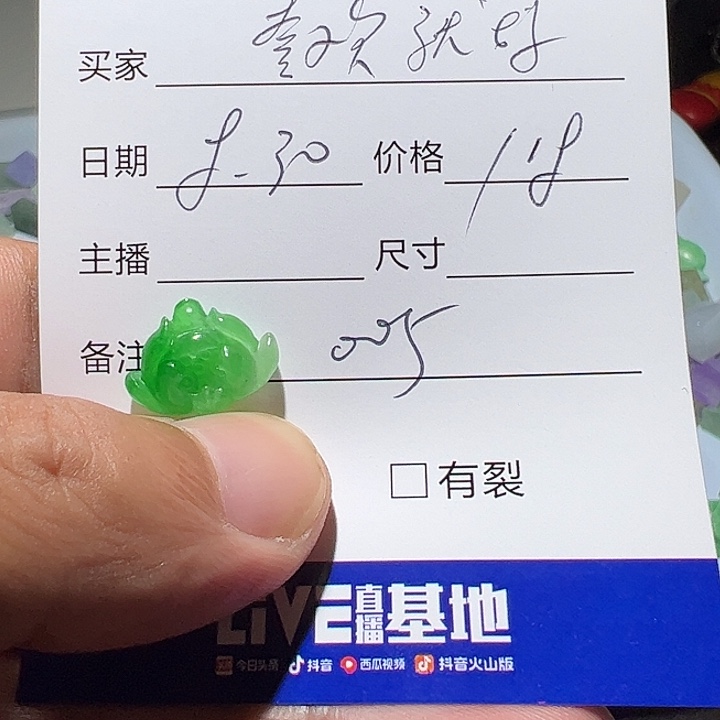 买家 喜欢就好
日期 8.30 价格
主播 尺寸
备注 005
□有裂
LIVE直播基地
今日头条 抖音 西瓜视频 抖音火山版